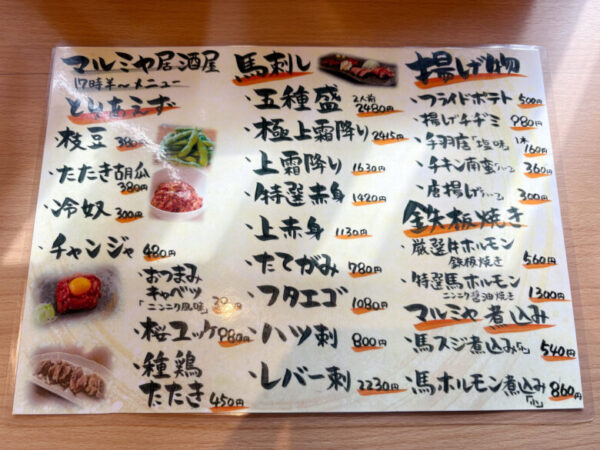 マルミヤ居酒屋
17時半〜メニュー
とりあえず
・枝豆 380円
・たたき胡瓜
380円
・冷奴 300円
・チャンジャ 480円
・おつまみ
キャベツ
「ニンニク風味」
・桜ユッケ 980円
・種鶏
たたき 450円
馬刺し
・五種盛 2人前
2480円
・極上霜降り 2415円
・上霜降り 1630円
・特選赤身 1420円
・上赤身 1130円
・たてがみ 780円
・フタエゴ 1080円
・ハツ刺 800円
・レバー刺 2230円
揚げ物
・フライドポテト 500円
・揚げチヂミ 980円
・手羽唐「塩・焼」1本
160円
・チキン南蛮 360円
・唐揚げ 300円
鉄板焼き
・厳選牛ホルモン
鉄板焼き 560円
・特選馬ホルモン
ニンニク醤油焼き
1300円
マルミヤ煮込み
・馬スジ煮込み「小」 540円
・馬ホルモン煮込み
「小」 860円